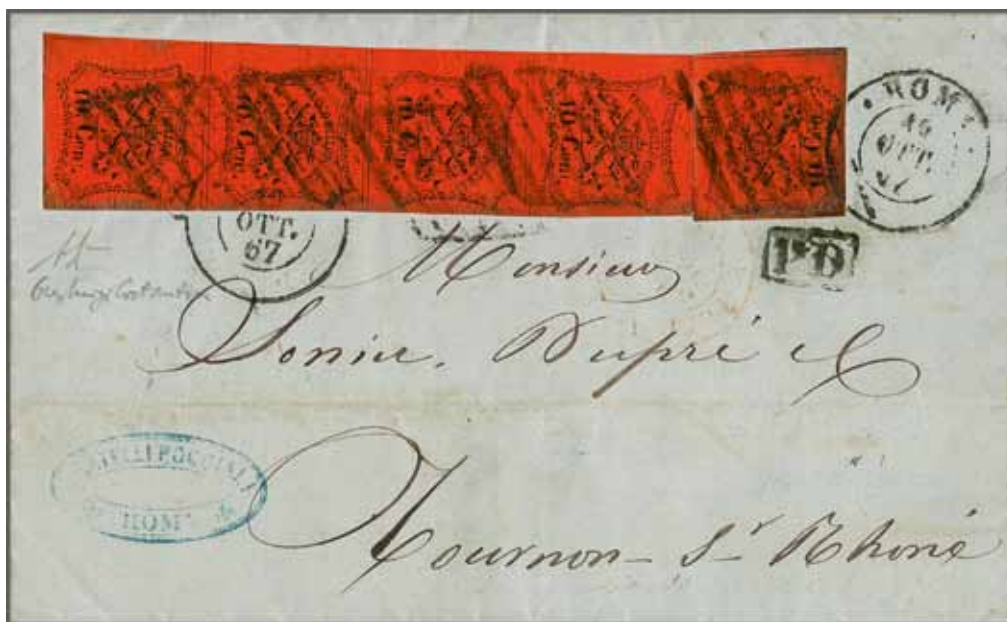 10 Cen. 10 Cen. 10 Cen. 10 Cen. 10 Cen.
ROMA
OTT.
OTT.
67
P.D
Monsieur
Sonier, Dupré &
Tournon s/r Rhone
ROMA